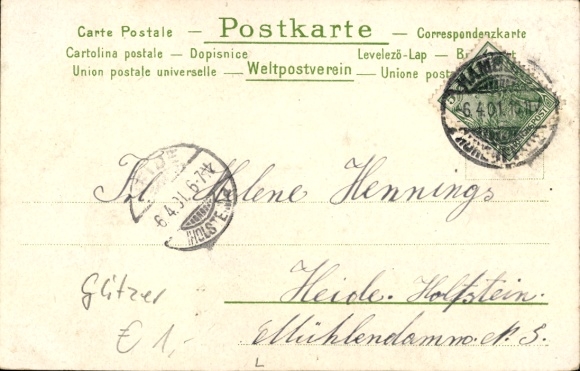 Carte Postale — Postkarte — Correspondenzkarte
Cartolina postale — Dopisnice Levelező-Lap —
Union postale universelle — Weltpostverein — Unione
HAMB
6.4.01.
HEIDE
6.4.01.6-7
(HOLSTE
Frl. Helene Hennings
Heide. Holstein.
Mühlendamm. N. 5.
Glitzer
€ 1,-